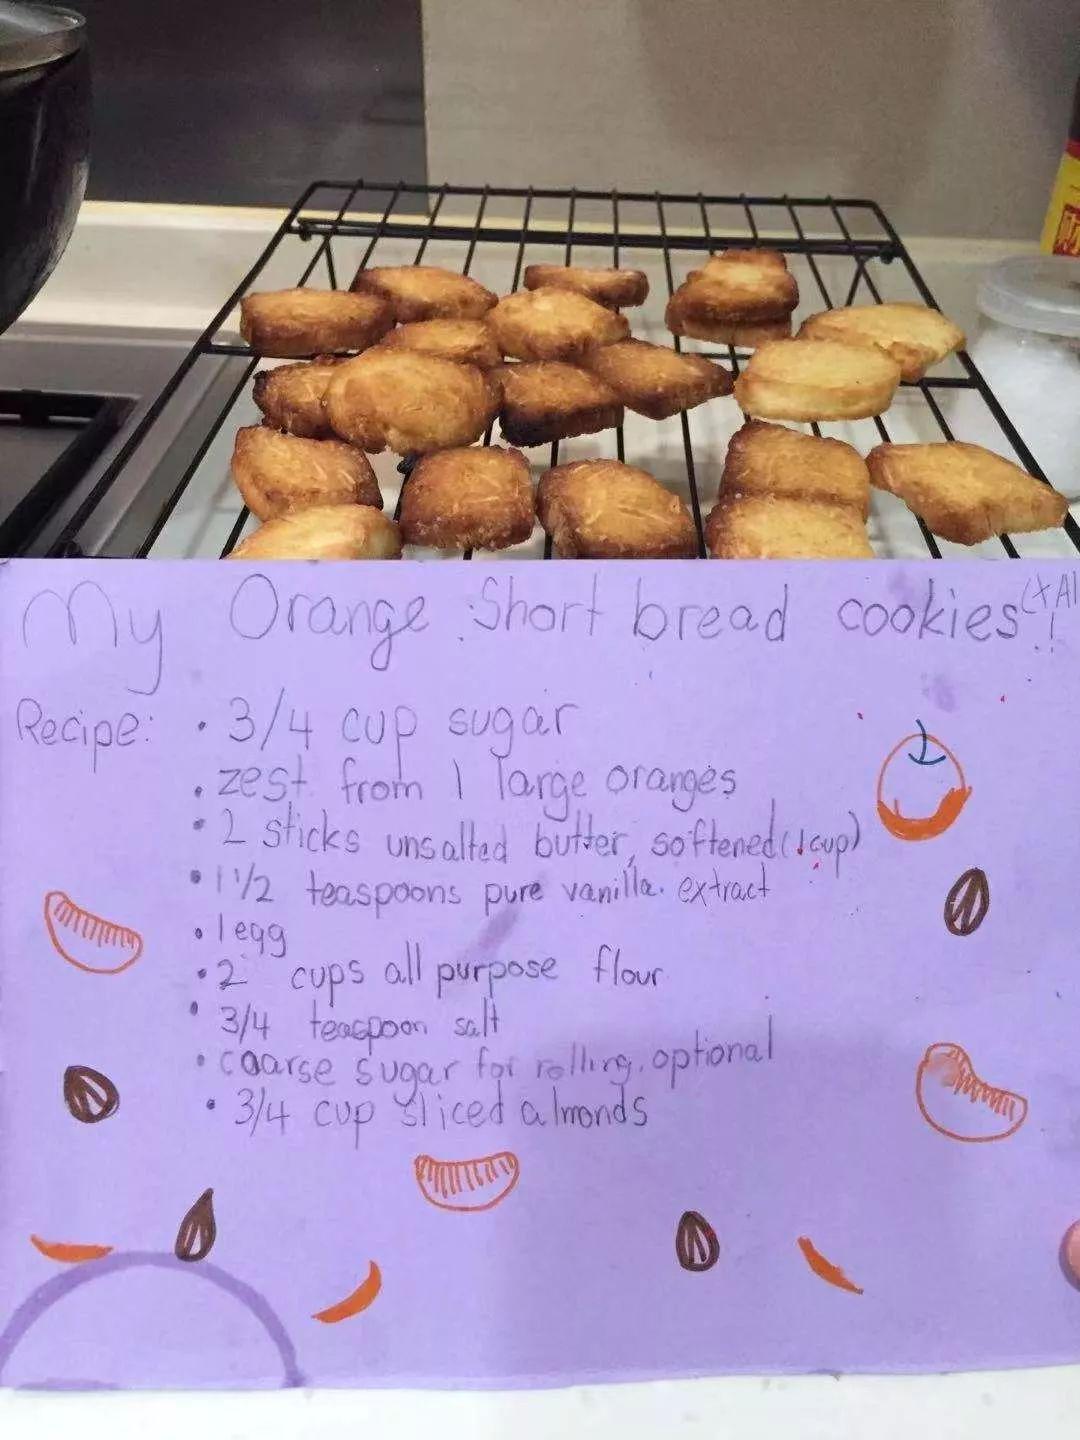 My Orange Short bread cookies (+Al
!
Recipe: • 3/4 cup sugar
• zest from 1 large oranges
• 2 sticks unsalted butter, softened (1cup)
• 1 1/2 teaspoons pure vanilla extract
• 1 egg
• 2 cups all purpose flour
• 3/4 teaspoon salt
• coarse sugar for rolling, optional
• 3/4 cup sliced almonds